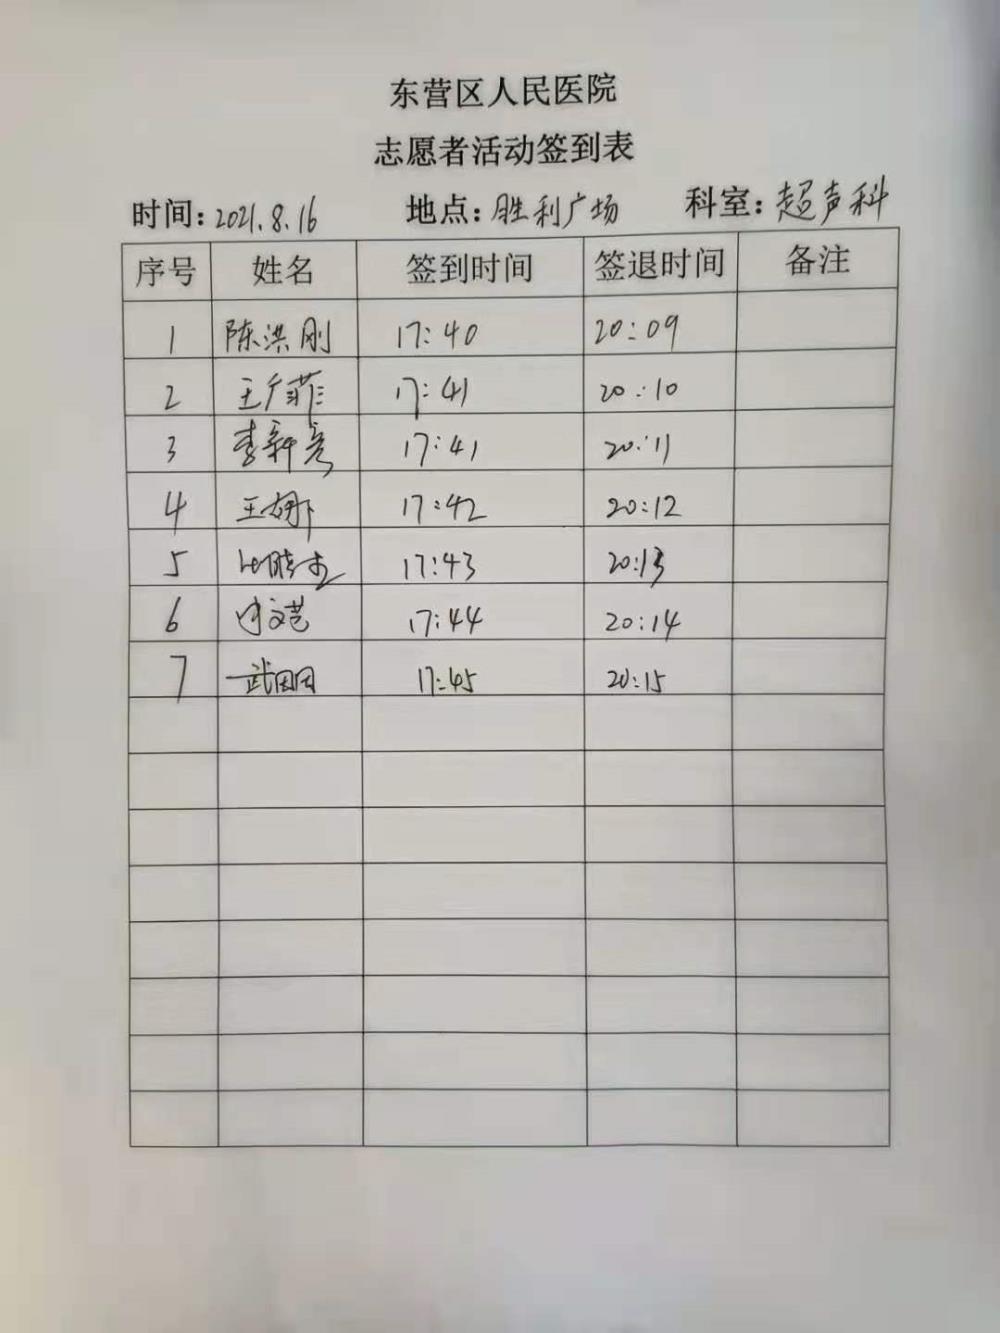 东营区人民医院
志愿者活动签到表
时间：2021.8.16 地点：胜利广场 科室：超声科
序号 姓名 签到时间 签退时间 备注
1 陈洪刚 17:40 20:09
2 王广菲 17:41 20:10
3 李新亮 17:41 20:11
4 王娜 17:42 20:12
5 17:43 20:13
6 文艺 17:44 20:14
7 武田田 17:45 20:15